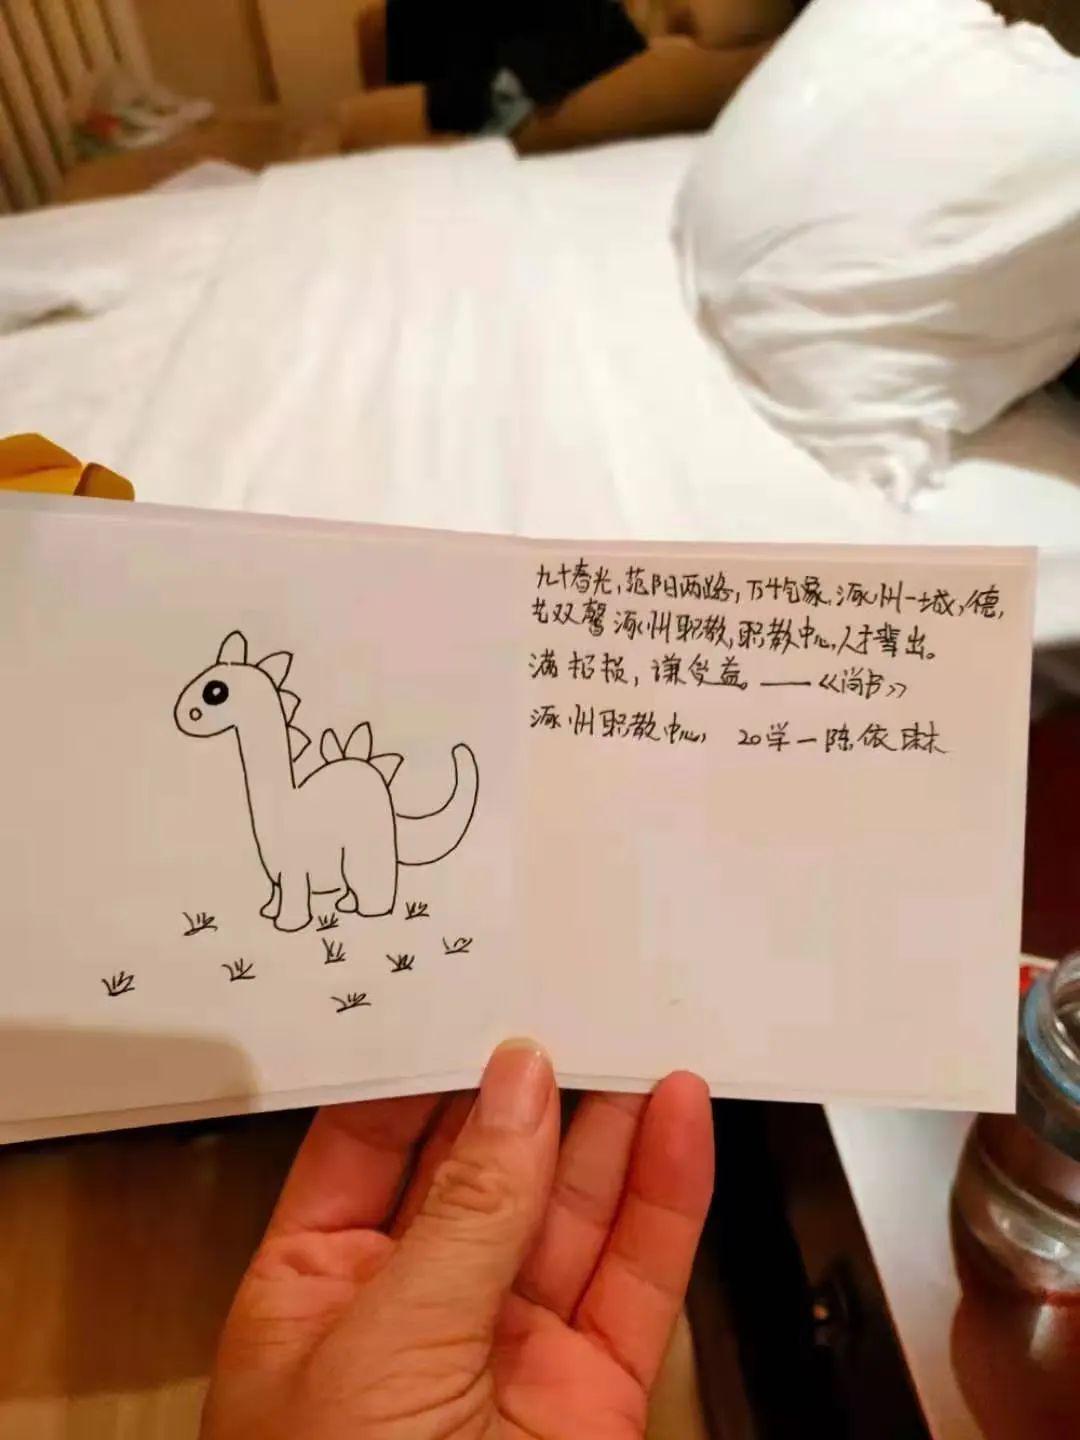 九十春光,范阳两路,万千气象,涿州一城,德,
艺双馨涿州职教,职教中心,人才辈出。
满招损,谦受益。——《尚书》
涿州职教中心 20学一陈依琳